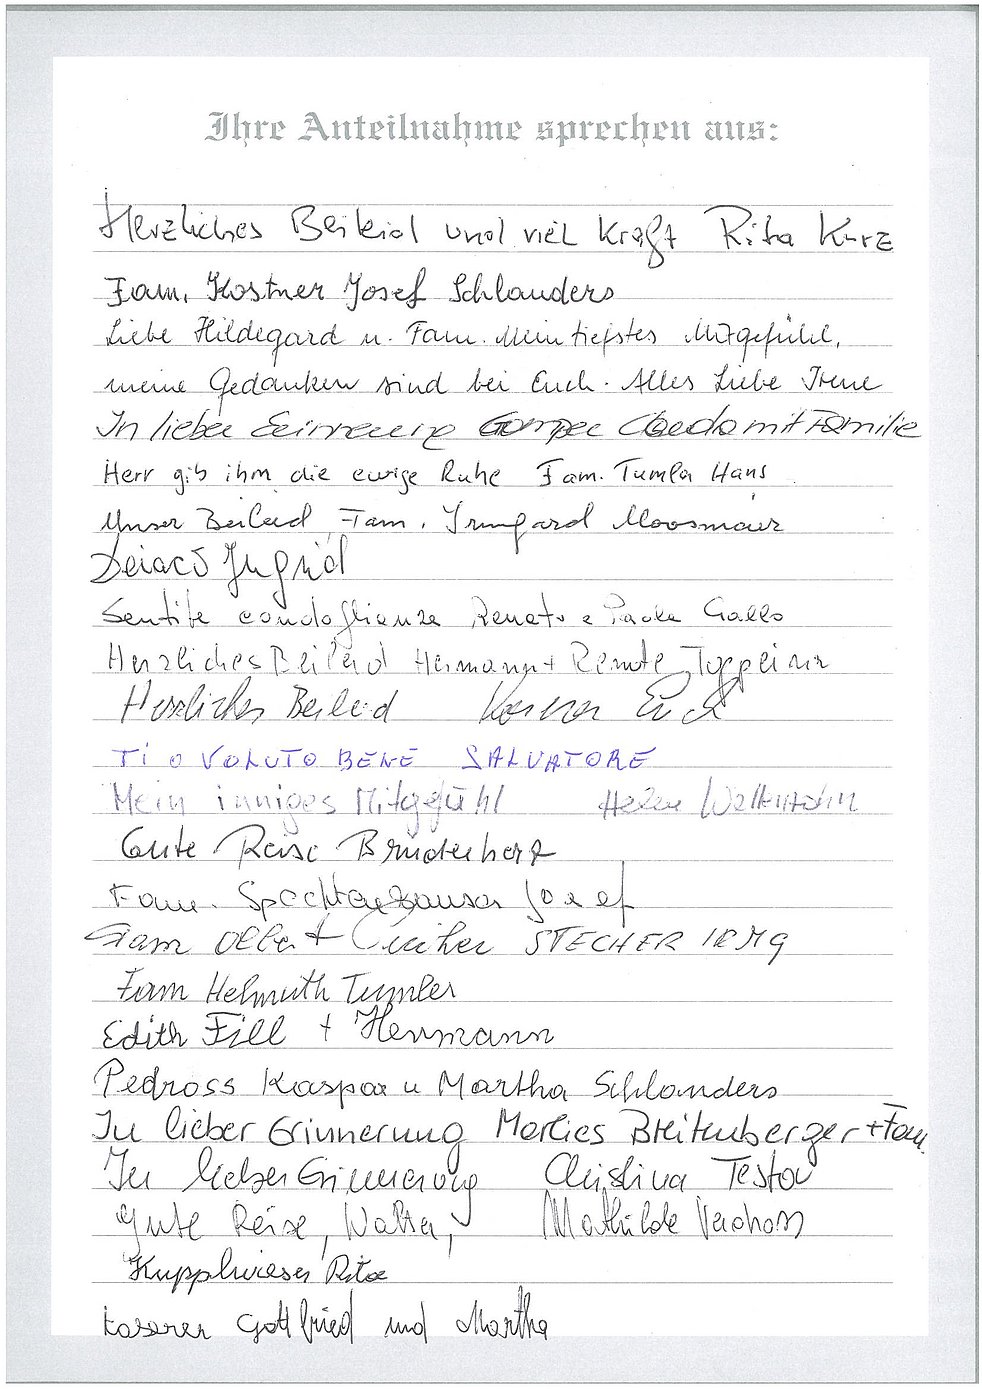 Ihre Anteilnahme sprechen aus:
Herzliches Beileid und viel Kraft Rita Kurz
Fam. Kostner Josef Schlanders
Liebe Hildegard u. Fam. Mein tiefstes Mitgefühl,
meine Gedanken sind bei Euch. Alles Liebe Irene
In lieber Erinnerung Gamper mit Familie
Herr gib ihm die ewige Ruhe Fam. Tumler Hans
Unser Beileid, Fam. Irmgard Moosmair
Ingrid
Sentite condoglianze Renato e Paola Gallo
Herzliches Beileid Hermann + Renate
Herzliches Beileid
TI O VOLUTO BENE SALVATORE
Mein inniges Mitgefühl
Gute Reise Bruderherz
Fam. Josef
Fam STECHER IRMG
Fam Helmuth Tumler
Edith Fill + Hermann
Pedross Kaspar u Martha Schlanders
In lieber Erinnerung Marlies Breitenberger + Fam.
In lieber Erinnerung Christina Testor
Gute Reise, Walter, Mathilde
Kupplwieser Rita
Kaserer Gottfried und Martha